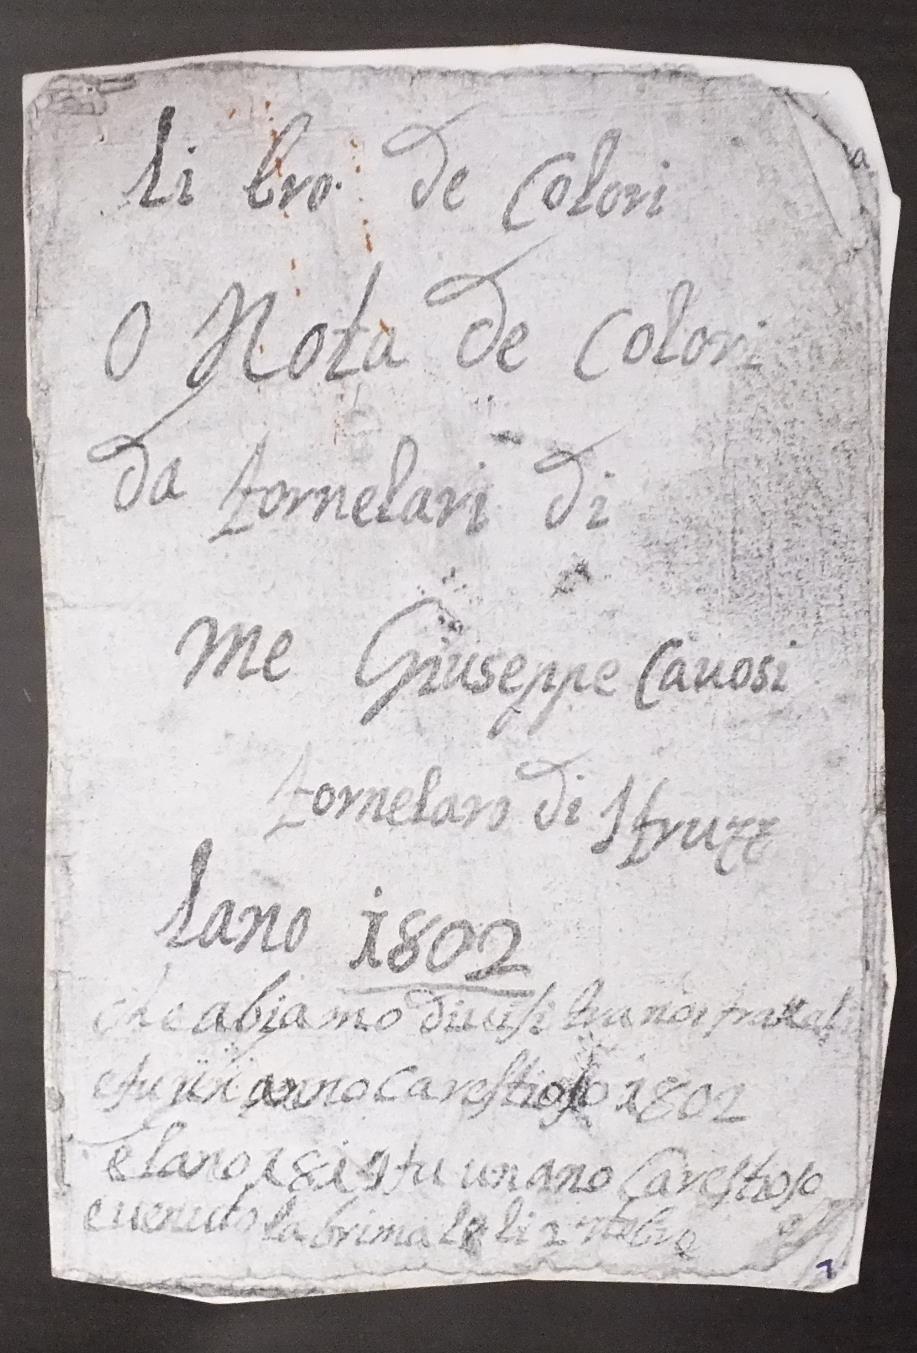 li bro de Colori
O Nota de Colori
da tornelari di
Me Giuseppe Cauosi
tornelaro di Struzz
lano 1802
che abiamo diuisi tra noi fratteli
e fu un anno carestioso 1802
e lano 1815 fu un ano Carestioso
e uenuto la brima li 2
7